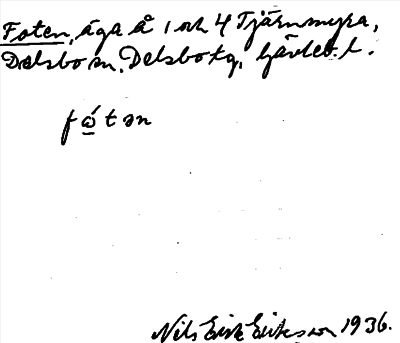 Foten, äga å 1 och 4 Tjärnmyra,
Delsbo sn. Delsbo tg, Gävleb. l.
fó̲tən
Nils Erik Eriksson 1936.